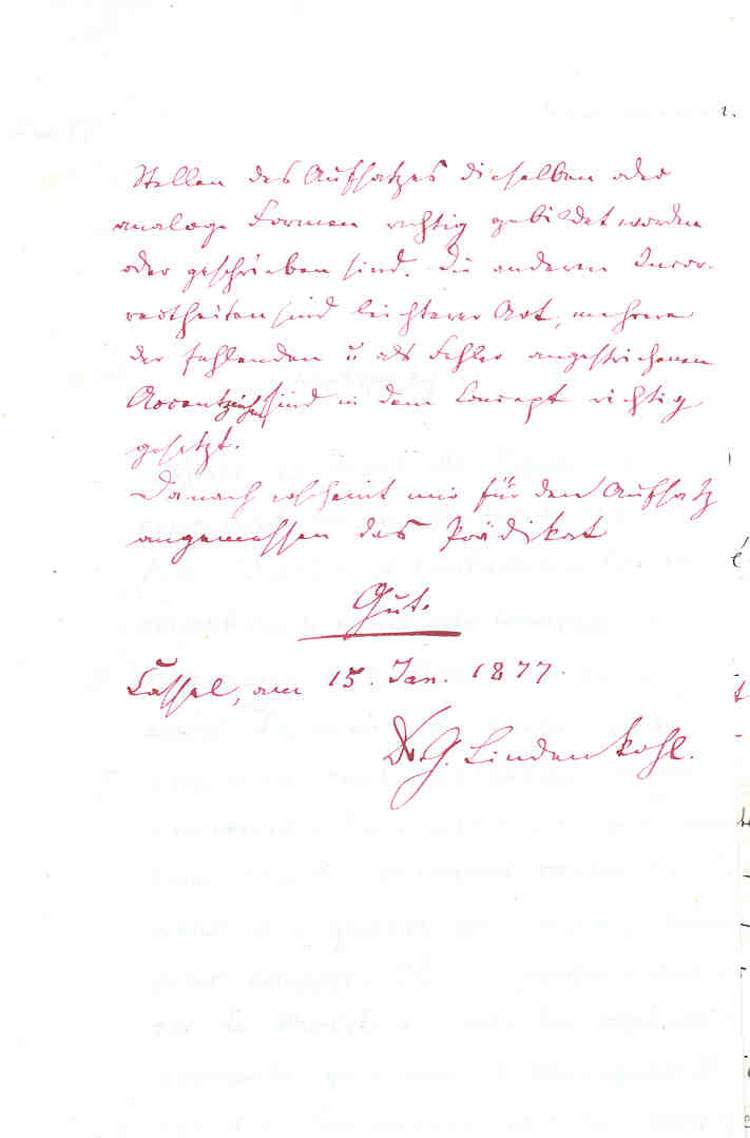 Stellen des Aufsatzes dieselben oder
analoge Formen richtig gebildet worden
oder geschrieben sind. Die anderen Incor-
rectheiten sind leichterer Art, mehrere
der fehlenden u als Fehler angestrichenen
Accentzeichen sind in dem Concept richtig
gesetzt.
Danach erscheint mir für den Aufsatz
angemessen das Prädikat
Gut.
Cassel, am 15. Jan. 1877.
Dr G. Lindenkohl.